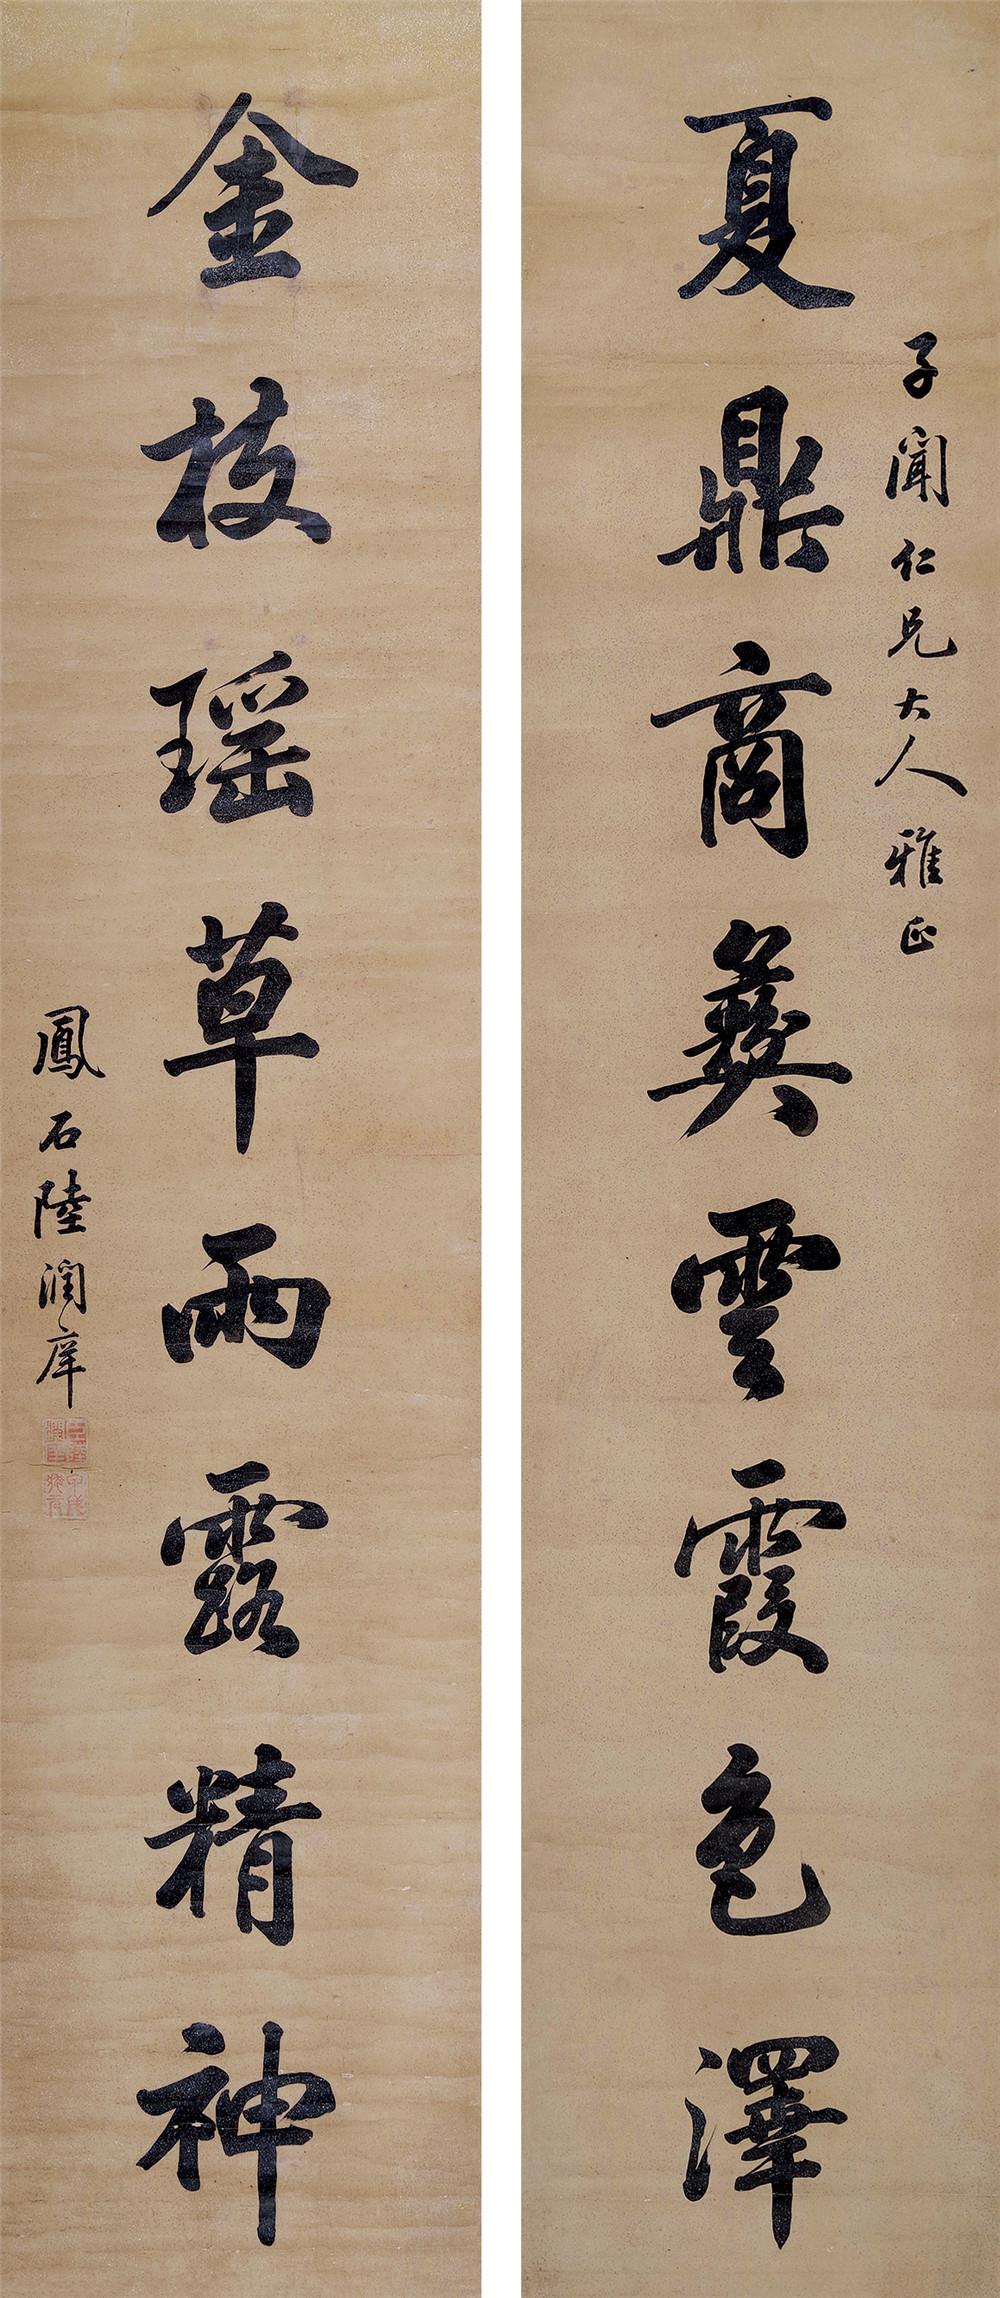 子聞仁兄大人雅正
夏鼎商彝雲霞色澤
金枝瑤草雨露精神
鳳石陸潤庠